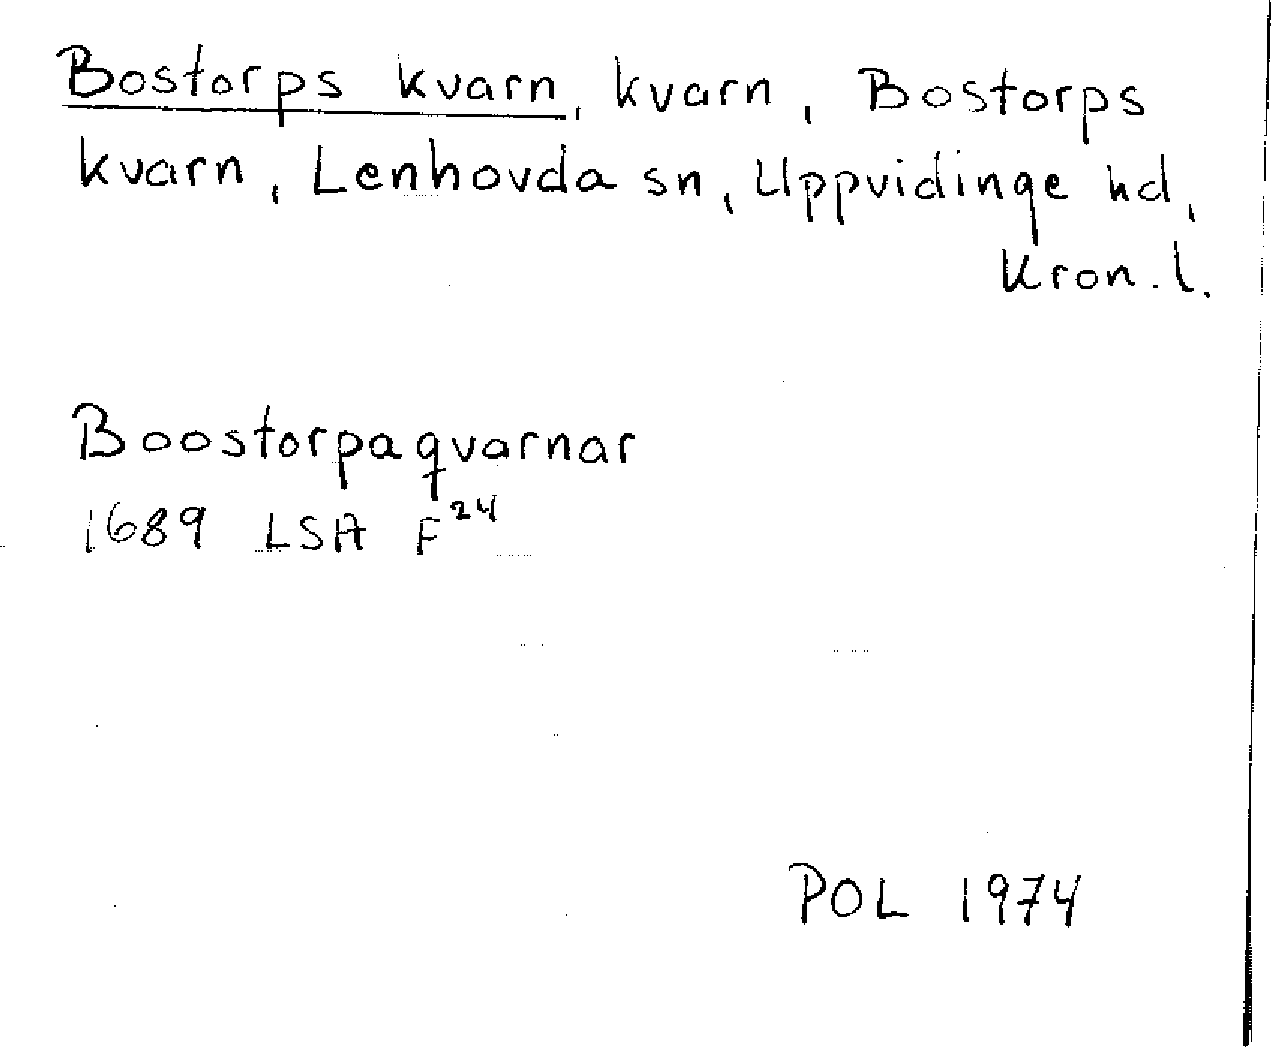 Bostorps kvarn, kvarn, Bostorps
kvarn, Lenhovda sn, Uppvidinge hd,
Kron. l.
Boostorpaqvarnar
1689 LSA F²⁴
POL 1974